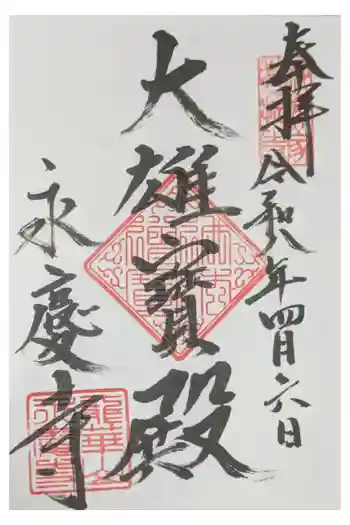 奉拝
令和八年四月六日
大雄寳殿
永慶寺